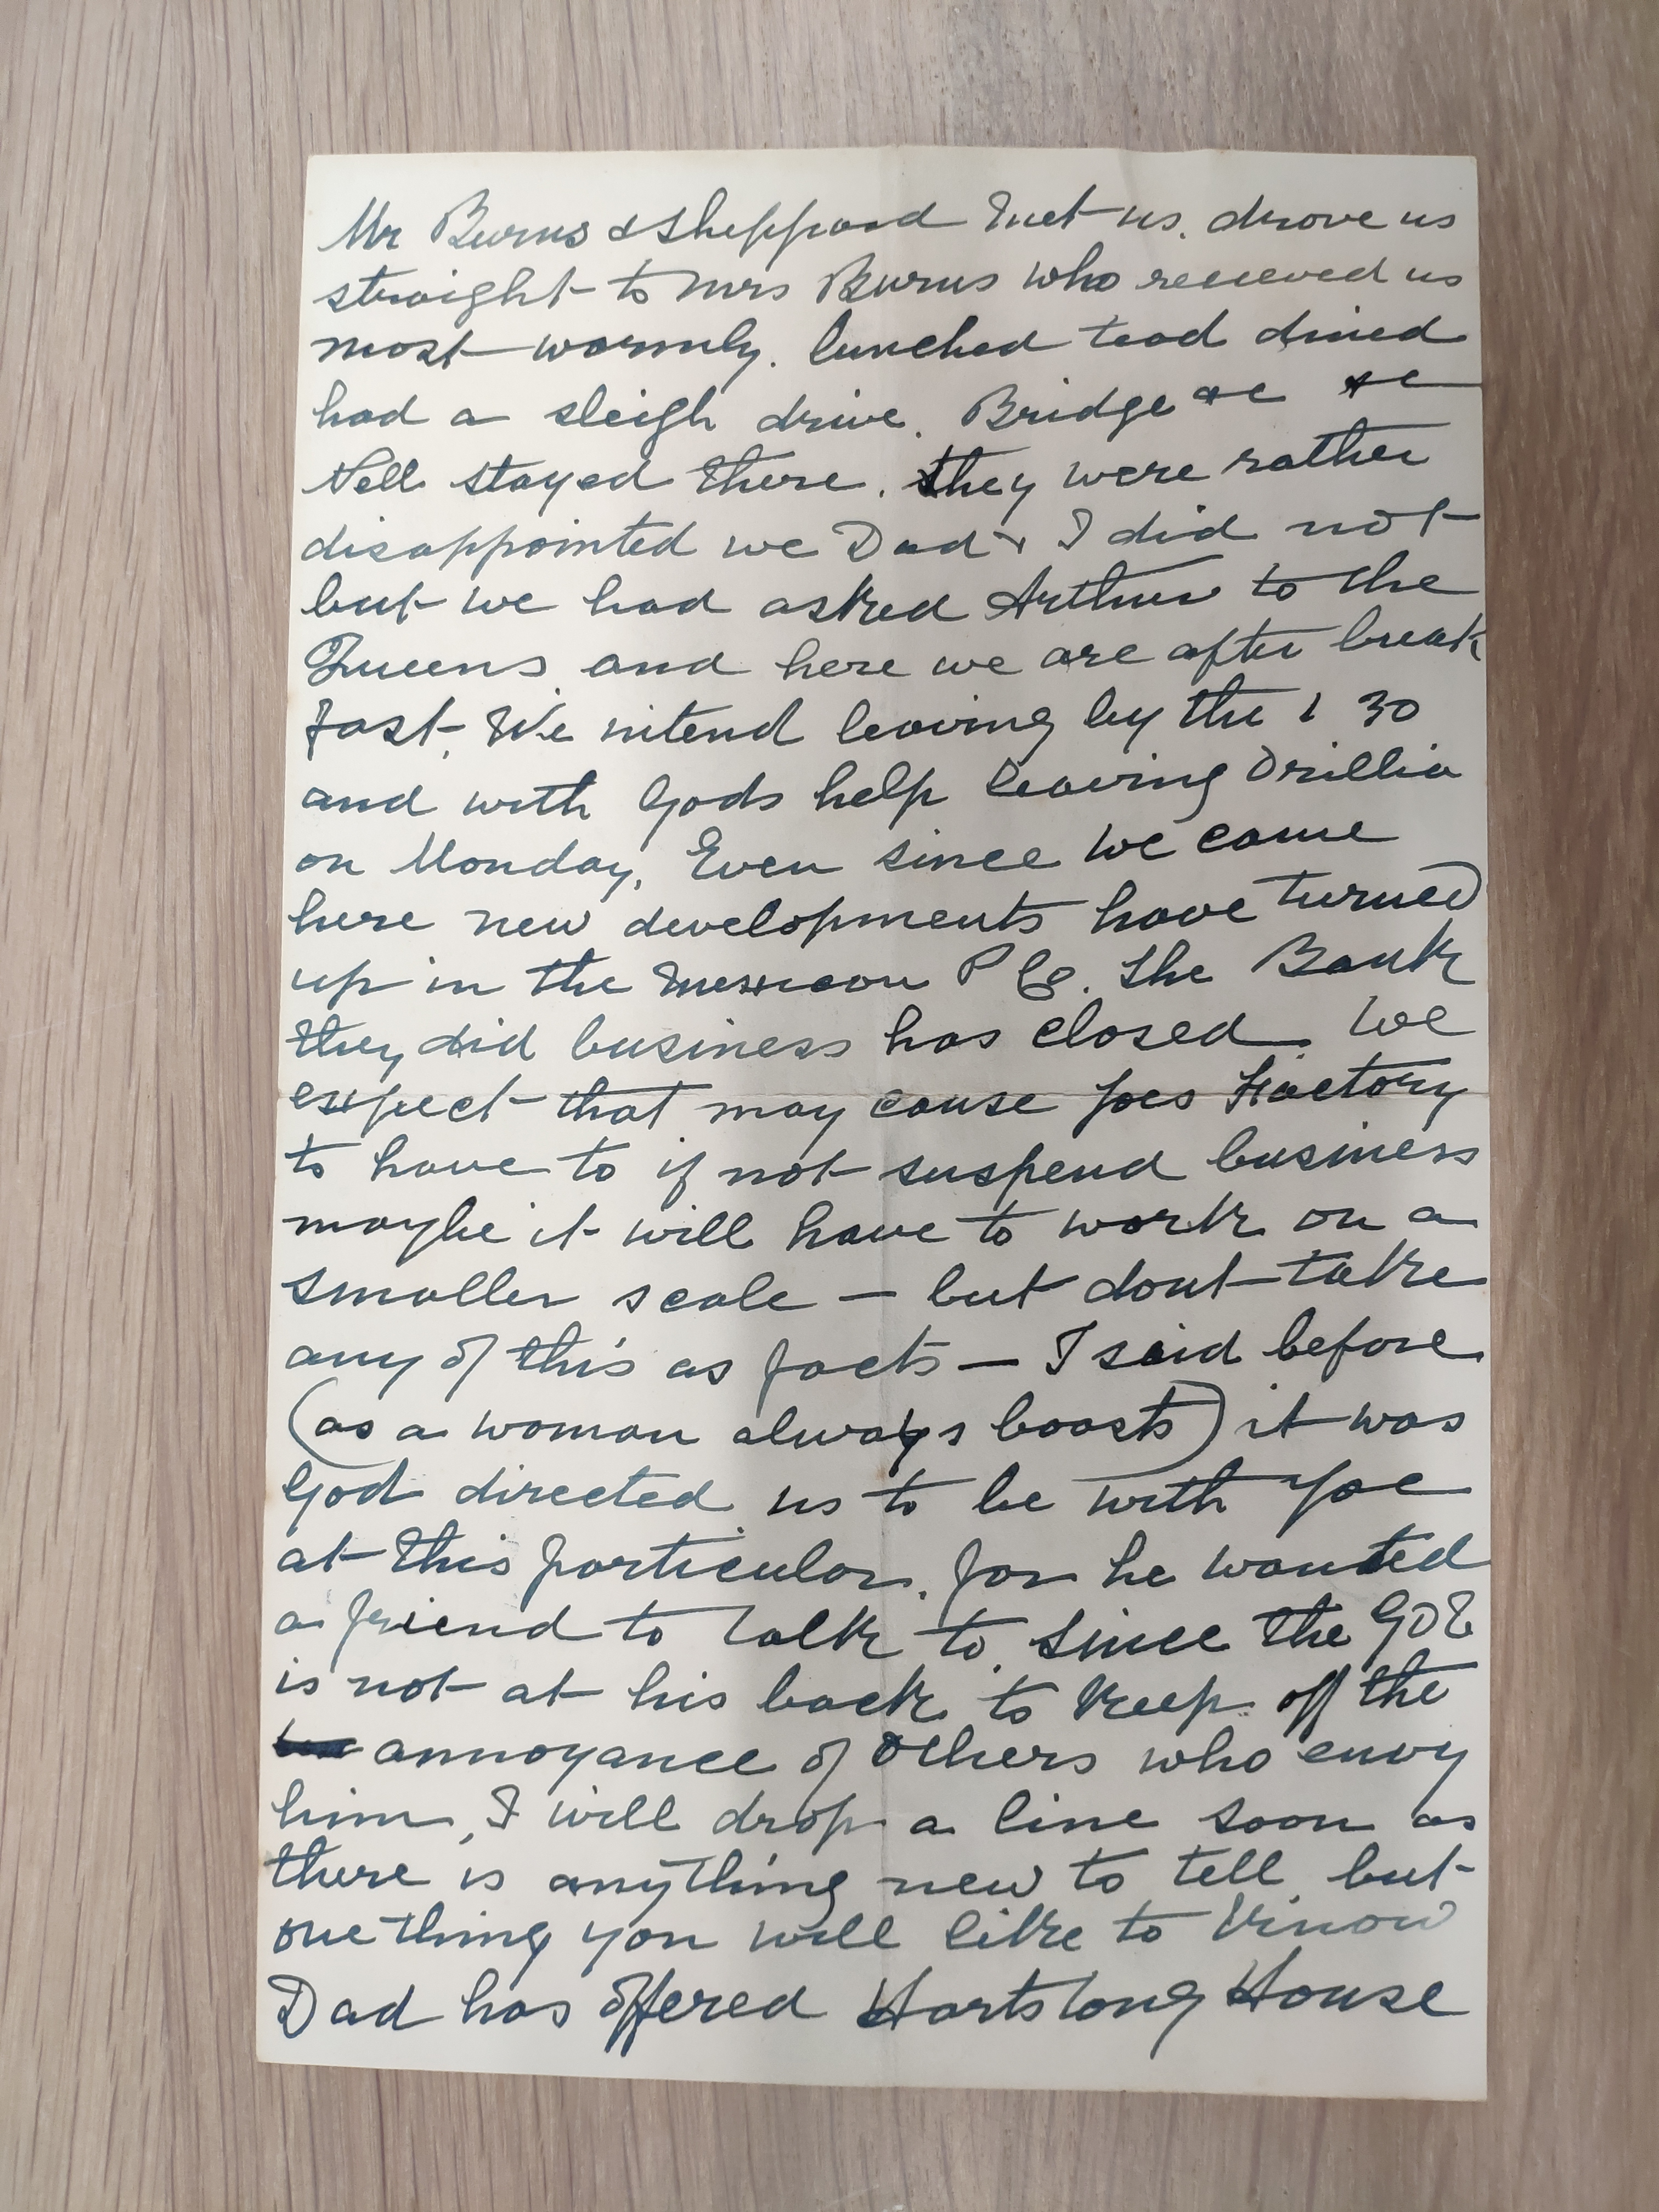 Mr Burns & Sheppard met us. drove us
straight to Mrs Burns who received us
most warmly. lunched tead dined
had a sleigh drive. Bridge &c &c
Nell stayed there. they were rather
disappointed we Dad & I did not
but we had asked Arthur to the
Queens and here we are after break
fast. We intend leaving by the 1 30
and with Gods help leaving Orillia
on Monday, Even since we came
here new developments have turned
up in the Mexican P Co. the Bank
they did business has closed. We
expect that may cause Joes Factory
to have to if not suspend business
maybe it will have to work on a
smaller scale — but dont take
any of this as facts — I said before
(as a woman always boasts) it was
God directed us to be with Joe
at this particular. for he wanted
a friend to talk to. since the
is not at his back to keep off the
annoyance of others who envy
him, I will drop a line soon as
there is anything new to tell, but
one thing you will like to know
Dad has offered Hartstong House